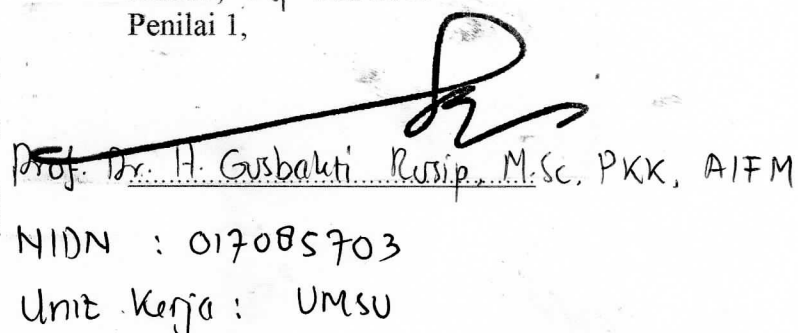 Penilai 1,
Prof. Dr. H. Gusbakti Rusip, M.Sc, PKK, AIFM
NIDN : 017085703
Unit Kerja : UMSU